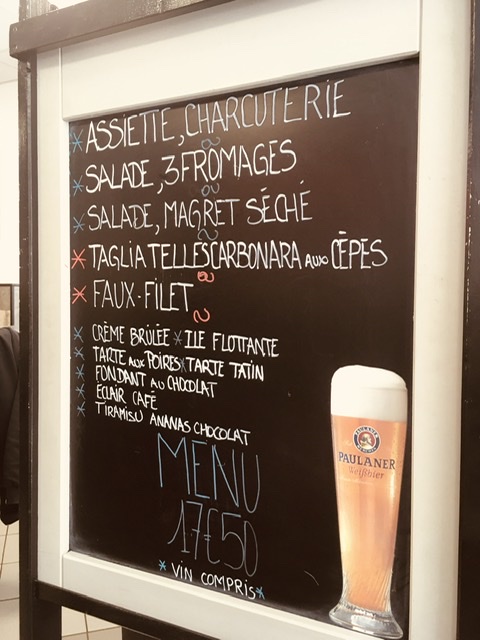 * ASSIETTE, CHARCUTERIE
ou
* SALADE, 3 FROMAGES
ou
* SALADE, MAGRET SÉCHÉ
* TAGLIATELLES CARBONARA aux CÈPES
ou
* FAUX-FILET
* CRÈME BRÛLÉE * ILE FLOTTANTE
* TARTE aux POIRES * TARTE TATIN
* FONDANT AU CHOCOLAT
* ECLAIR CAFÉ
* TIRAMISU ANANAS CHOCOLAT
MENU
17€50
* VIN COMPRIS *
PAULANER
MÜNCHEN
PAULANER
Weißbier